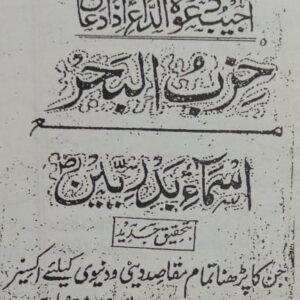 اجیب دعوۃ الداع اذا دعان
حزب البحر
مع
اسمآء بدریین
بتحقیق جدید
جن کا پڑھنا تمام مقاصد دینی و دنیوی کیلئے اکسیر